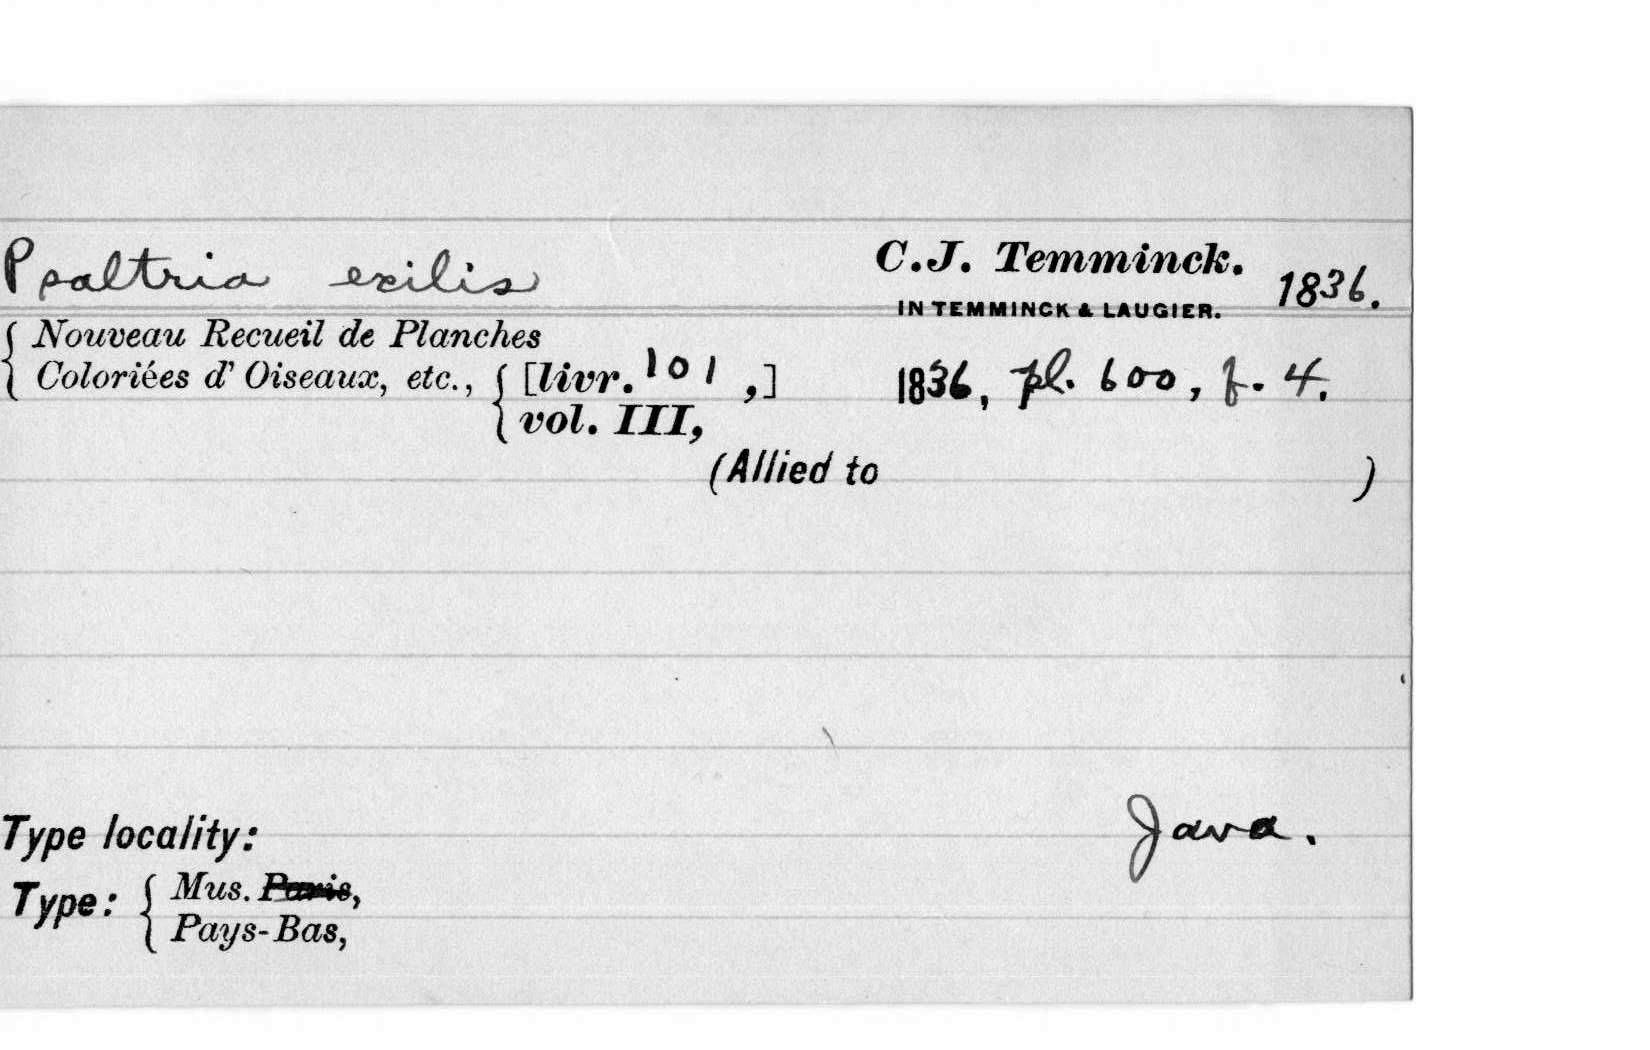 Psaltria exilis C.J. Temminck. 1836.
IN TEMMINCK & LAUGIER.
Nouveau Recueil de Planches
Coloriées d' Oiseaux, etc., [livr. 101,] 1836, pl. 600, f. 4.
vol. III,
(Allied to )
Type locality: Java.
Type: Mus. Paris,
Pays-Bas,